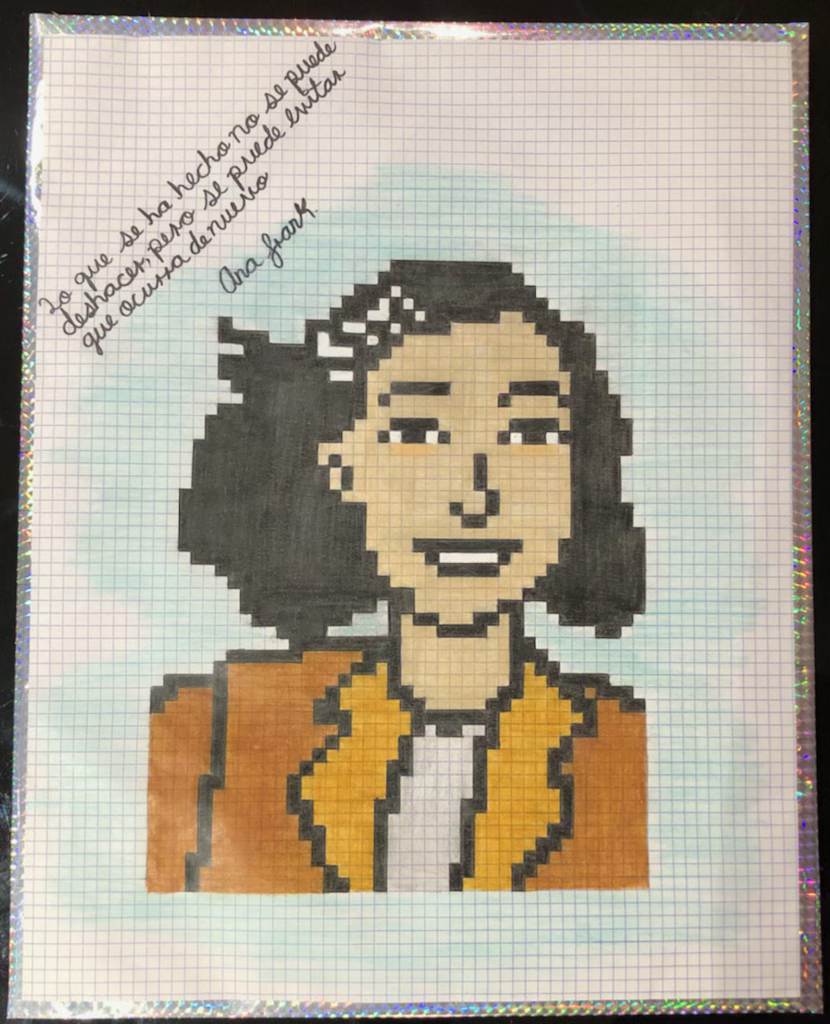 Lo que se ha hecho no se puede
deshacer, pero se puede evitar
que ocurra de nuevo
Ana frank